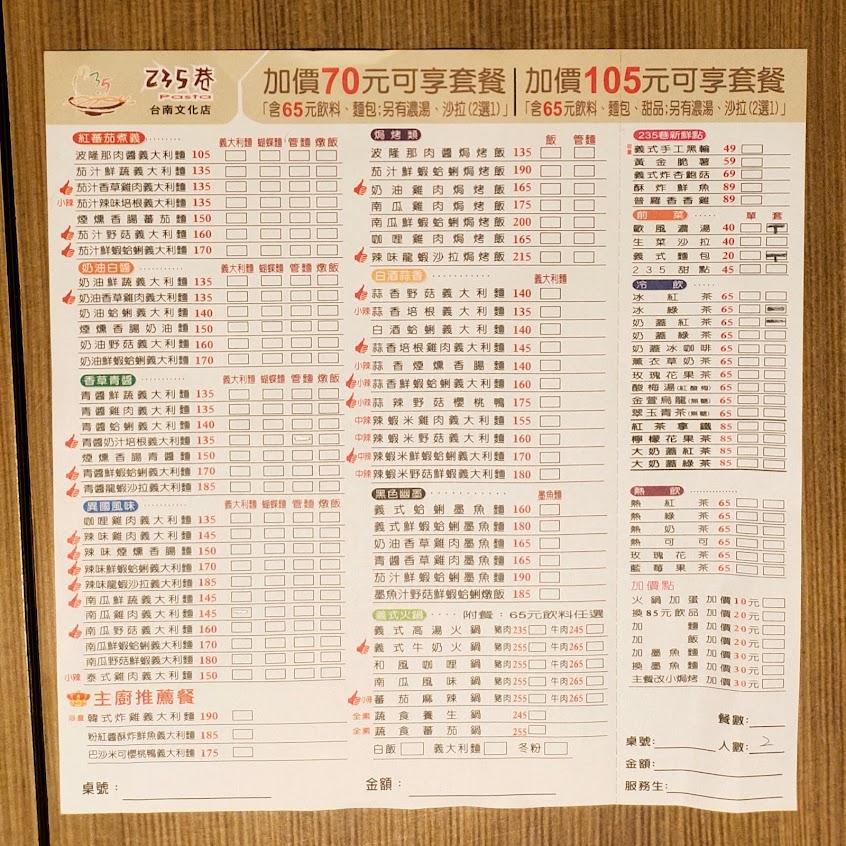 235巷
Pasta
台南文化店
加價70元可享套餐
「含65元飲料、麵包;另有濃湯、沙拉(2選1)」
加價105元可享套餐
「含65元飲料、麵包、甜品;另有濃湯、沙拉(2選1)」
紅蕃茄煮義 義大利麵 蝴蝶麵 管麵 燉飯
波隆那肉醬義大利麵 105
茄汁鮮蔬義大利麵 135
茄汁香草雞肉義大利麵 135
小辣 茄汁辣味培根義大利麵 135
煙燻香腸蕃茄麵 150
茄汁野菇義大利麵 160
茄汁鮮蝦蛤蜊義大利麵 170
奶油白醬 義大利麵 蝴蝶麵 管麵 燉飯
奶油鮮蔬義大利麵 135
奶油香草雞肉義大利麵 135
奶油蛤蜊義大利麵 140
煙燻香腸奶油麵 150
奶油野菇義大利麵 160
奶油鮮蝦蛤蜊義大利麵 170
香草青醬 義大利麵 蝴蝶麵 管麵 燉飯
青醬鮮蔬義大利麵 135
青醬雞肉義大利麵 135
青醬蛤蜊義大利麵 140
青醬奶汁培根義大利麵 135
煙燻香腸青醬麵 150
青醬鮮蝦蛤蜊義大利麵 170
青醬龍蝦沙拉義大利麵 185
異國風味 義大利麵 蝴蝶麵 管麵 燉飯
咖哩雞肉義大利麵 135
辣味雞肉義大利麵 145
辣味煙燻香腸麵 150
辣味鮮蝦蛤蜊義大利麵 170
辣味龍蝦沙拉義大利麵 185
南瓜鮮蔬義大利麵 145
南瓜雞肉義大利麵 145
南瓜野菇義大利麵 160
南瓜鮮蝦蛤蜊義大利麵 170
南瓜野菇鮮蝦義大利麵 180
小辣 泰式雞肉義大利麵 150
主廚推薦餐
限量 韓式炸雞義大利麵 190
粉紅醬酥炸鮮魚義大利麵 185
巴沙米可櫻桃鴨義大利麵 175
桌號:
焗烤類 飯 管麵
波隆那肉醬焗烤飯 135
茄汁鮮蝦蛤蜊焗烤飯 190
奶油雞肉焗烤飯 165
南瓜雞肉焗烤飯 175
南瓜鮮蝦蛤蜊焗烤飯 200
咖哩雞肉焗烤飯 165
辣味龍蝦沙拉焗烤飯 215
白酒蒜香 義大利麵
蒜香野菇義大利麵 140
小辣 蒜香培根義大利麵 135
白酒蛤蜊義大利麵 140
蒜香培根雞肉義大利麵 145
小辣 蒜香煙燻香腸麵 140
小辣 蒜香鮮蝦蛤蜊義大利麵 160
小辣 蒜辣野菇櫻桃鴨 175
中辣 辣蝦米雞肉義大利麵 155
中辣 辣蝦米野菇義大利麵 160
中辣 辣蝦米鮮蝦蛤蜊義大利麵 170
中辣 辣蝦米野菇鮮蝦義大利麵 180
黑色幽墨 墨魚麵
義式蛤蜊墨魚麵 160
義式鮮蝦蛤蜊墨魚麵 180
奶油香草雞肉墨魚麵 165
青醬香草雞肉墨魚麵 165
茄汁鮮蝦蛤蜊墨魚麵 190
墨魚汁野菇鮮蝦蛤蜊燉飯 185
義式火鍋 附餐:65元飲料任選
義式高湯火鍋 豬肉235 牛肉245
義式牛奶火鍋 豬肉255 牛肉265
和風咖哩鍋 豬肉255 牛肉265
南瓜風味鍋 豬肉255 牛肉265
小辣 蕃茄麻辣鍋 豬肉255 牛肉265
全素 蔬食養生鍋 245
全素 蔬食蕃茄鍋 255
白飯 義大利麵 冬粉
金額:
235巷新鮮點
限量 義式手工黑輪 49
黃金脆薯 59
義式炸杏鮑菇 69
酥炸鮮魚 89
普羅香香雞 89
前菜 單 套
歐風濃湯 40
生菜沙拉 40
義式麵包 20
235甜點 45
冷飲
冰紅茶 65
冰綠茶 65
奶蓋紅茶 65
奶蓋綠茶 65
奶蓋冰咖啡 65
薰衣草奶茶 65
玫瑰花果茶 65
酸梅湯(紅酸梅) 65
金萱烏龍(無糖) 65
翠玉青茶(無糖) 65
紅茶拿鐵 85
檸檬花果茶 85
大奶蓋紅茶 85
大奶蓋綠茶 85
熱飲
熱紅茶 65
熱綠茶 65
熱奶茶 65
熱可可 65
玫瑰花茶 65
藍莓果茶 65
加價點
火鍋加蛋 加價10元
換85元飲品 加價20元
加麵 加價20元
加飯 加價20元
加墨魚麵 加價30元
換墨魚麵 加價30元
主餐改小焗烤 加價30元
餐數:
桌號: 人數: 2
金額:
服務生: